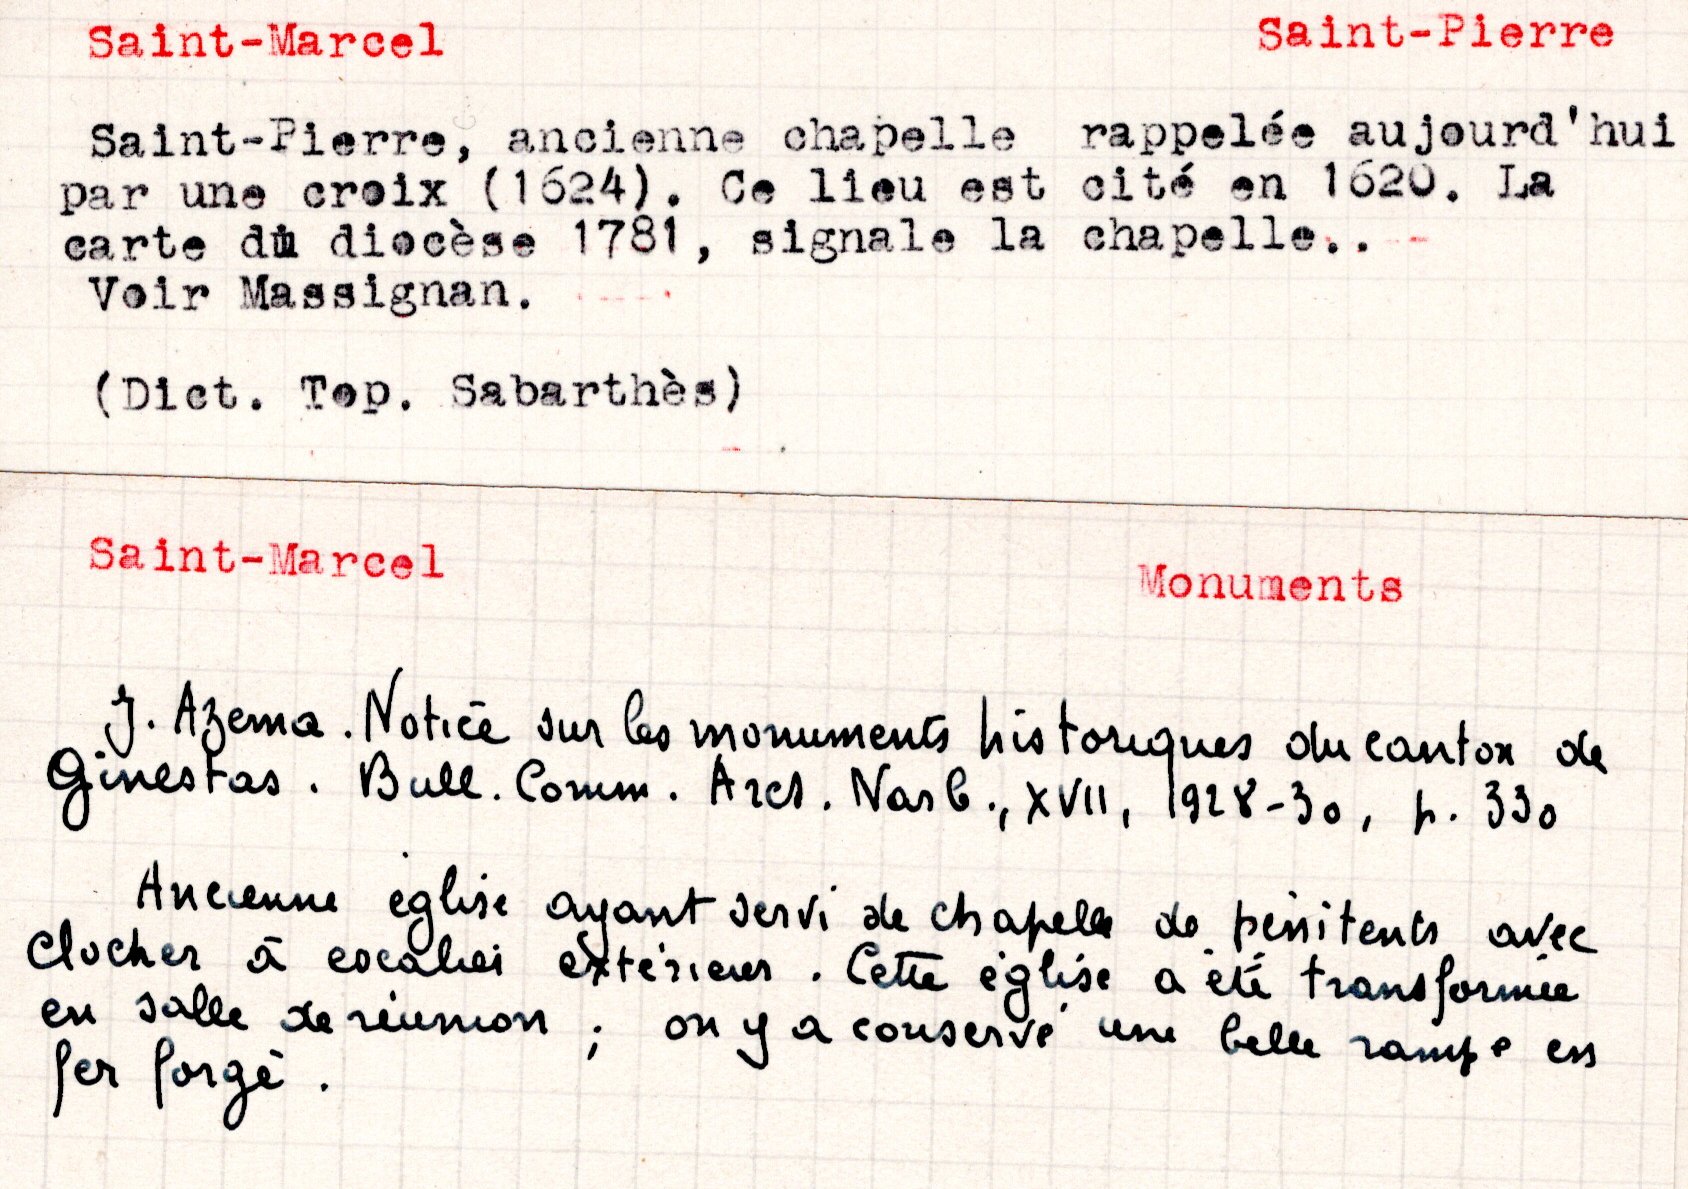 Saint-Marcel Saint-Pierre
Saint-Pierre, ancienne chapelle rappelée aujourd'hui
par une croix (1624). Ce lieu est cité en 1620. La
carte du diocèse 1781, signale la chapelle..
Voir Massignan.
(Dict. Top. Sabarthès)
Saint-Marcel Monuments
J. Azema. Notice sur les monuments historiques du canton de
Ginestas. Bull. Comm. Arch. Narb., XVII, 1928-30, p. 330
Ancienne église ayant servi de chapelle de pénitents avec
clocher à escalier extérieur. Cette église a été transformée
en salle de réunion ; on y a conservé une belle rampe en
fer forgé.